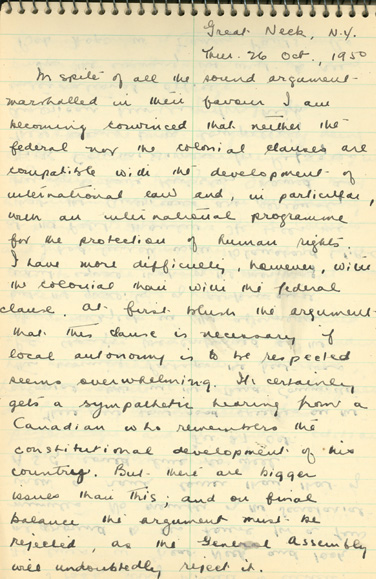 Great Neck, N.Y.
Thur. 26 Oct., 1950
In spite of all the sound argument
marshalled in their favour I am
becoming convinced that neither the
federal nor the colonial clauses are
compatible with the development of
international law and, in particular,
with an international programme
for the protection of human rights.
I have more difficulty, however, with
the colonial than with the federal
clause. At first blush the argument
that this clause is necessary if
local autonomy is to be respected
seems overwhelming. It certainly
gets a sympathetic hearing from a
Canadian who remembers the
constitutional development of his
country. But there are bigger
issues than this; and on final
balance the argument must be
rejected, as the General Assembly
will undoubtedly reject it.